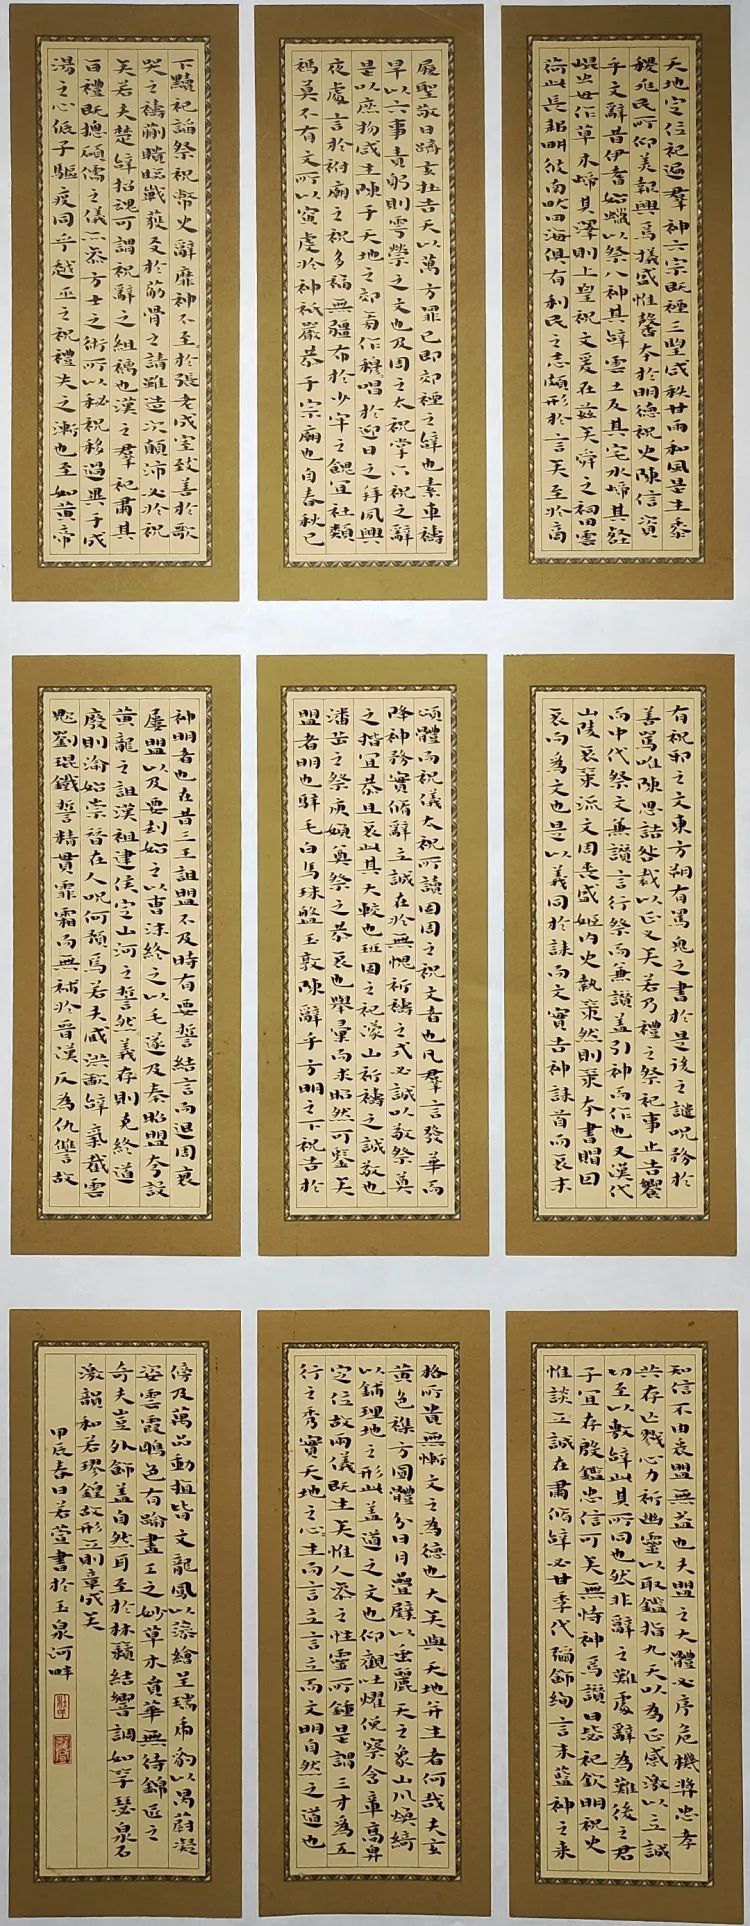 天地定位祀遍羣神六宗既禋三望咸秩甘雨和風是生黍
稷兆民所仰美報興焉犧盛惟馨本於明德祝史陳信資
乎文辭昔伊耆始蠟以祭八神其辭雲土反其宅水歸其壑
崐虫毋作草木歸其澤則上皇祝文爰在茲矣舜之祠田雲
荷此長耜明彼南畝四海俱有利民之志頗形於言矣至於商
履聖敬日躋玄牡告天以萬方罪己即郊禋之辭也素車禱
旱以六事責躬則雩禜之文也及周之太祝掌六祝之辭
是以庶物咸生陳于天地之郊旁作穆唱於迎日之拜夙興
夜處言於祔廟之祝多福無疆布於少牢之饋宜社類
禡莫不有文所以寅虔於神祇嚴恭于宗廟也自春秋已
下黷祀諂祭祝幣史辭靡神不至於張老成室致善於歌
哭之禱蒯聵臨戰獲及於筋骨之請雖造次顛沛必於祝
矣若夫楚辭招魂可謂祝辭之組纚也漢之羣祀肅其
百禮既總碩儒之儀亦參方士之術所以秘祝移過異于成
湯之心侲子驅疫同乎越巫之祝禮失之漸也至如黃帝
有祝邪之文東方朔有罵鬼之書於是後之譴咒務於
善罵唯陳思詰咎裁以正義矣若乃禮之祭祀事止告饗
而中代祭文兼讚言行祭而兼讚蓋引神而作也又漢代
山陵哀策流文周喪盛姬內史執策然則策本書賵因
哀而為文也是以義同於誄而文實告神誄首而哀末
頌體而祝儀太祝所讀固周之祝文者也凡羣言發華而
降神務實脩辭立誠在於無愧祈禱之式必誠以敬祭奠
之楷宜恭且哀此其大較也班固之祀濛山祈禱之誠敬也
潘岳之祭庾婦奠祭之恭哀也舉彙而求昭然可鑒矣
盟者明也騂毛白馬珠盤玉敦陳辭乎方明之下祝告於
神明者也在昔三王詛盟不及時有要誓結言而退周衰
屢盟以及要刦始之以曹沫終之以毛遂及秦昭盟夷設
黃龍之詛漢祖建侯定山河之誓然義存則克終道
廢則渝始崇替在人呪何預焉若夫臧洪歃辭氣截雲
蜺劉琨鐵誓精貫霏霜而無補於晉漢反為仇讎故
知信不由衷盟無益也夫盟之大體必序危機獎忠孝
共存亡戮心力祈幽靈以取鑑指九天以為正感激以立誠
切至以敷辭此其所同也然非辭之難處辭為難後之君
子宜存殷鑑忠信可矣無恃神焉讚曰毖祀欽明祝史
惟談立誠在肅脩辭必甘季代彌飾絢言朱藍神之來
格所貴無慚文之為德也大矣與天地并生者何哉夫玄
黃色襍方圓體分日月疊璧以垂麗天之象山川煥綺
以鋪理地之形此蓋道之文也仰觀吐耀俯察含章高卑
定位故兩儀既生矣惟人參之性靈所鍾是謂三才為五
行之秀實天地之心生而言立言立而文明自然之道也
傍及萬品動植皆文龍鳳以藻繪呈瑞虎豹以炳蔚凝
姿雲霞雕色有踰畫工之妙草木賁華無待錦匠之
奇夫豈外飾蓋自然耳至於林籟結響調如竽瑟泉石
激韻和若球鍠故形立則章成矣
甲辰春日若萱書於玉泉河畔